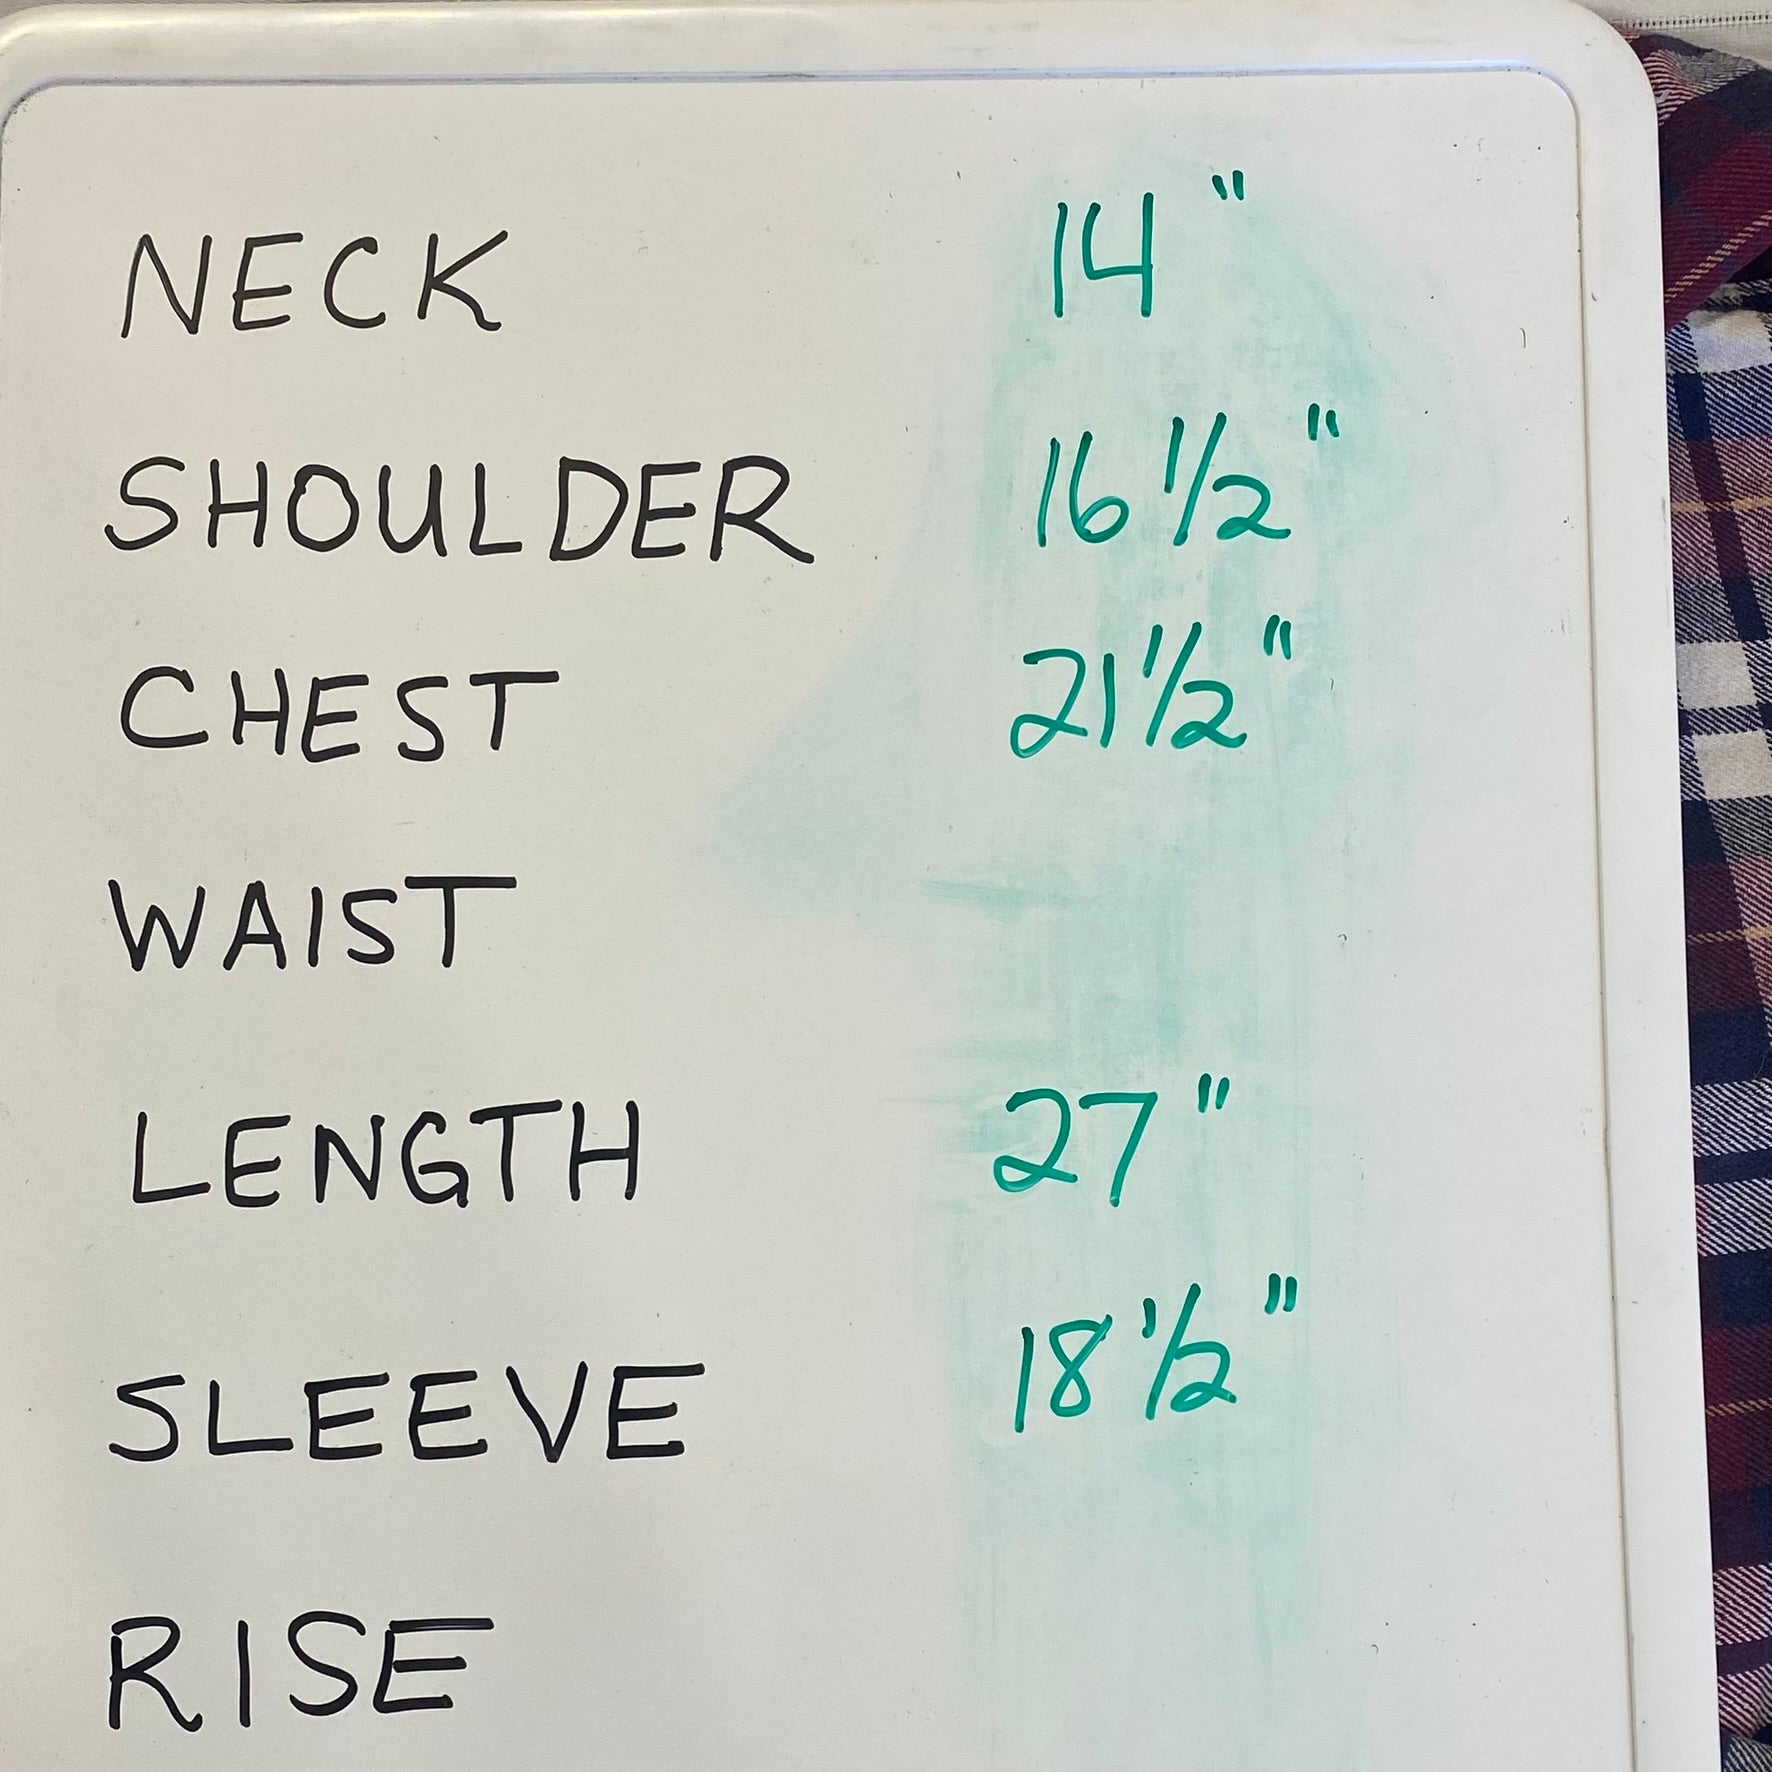 NECK 14"
SHOULDER 16 1/2"
CHEST 21 1/2"
WAIST
LENGTH 27"
SLEEVE 18 1/2"
RISE